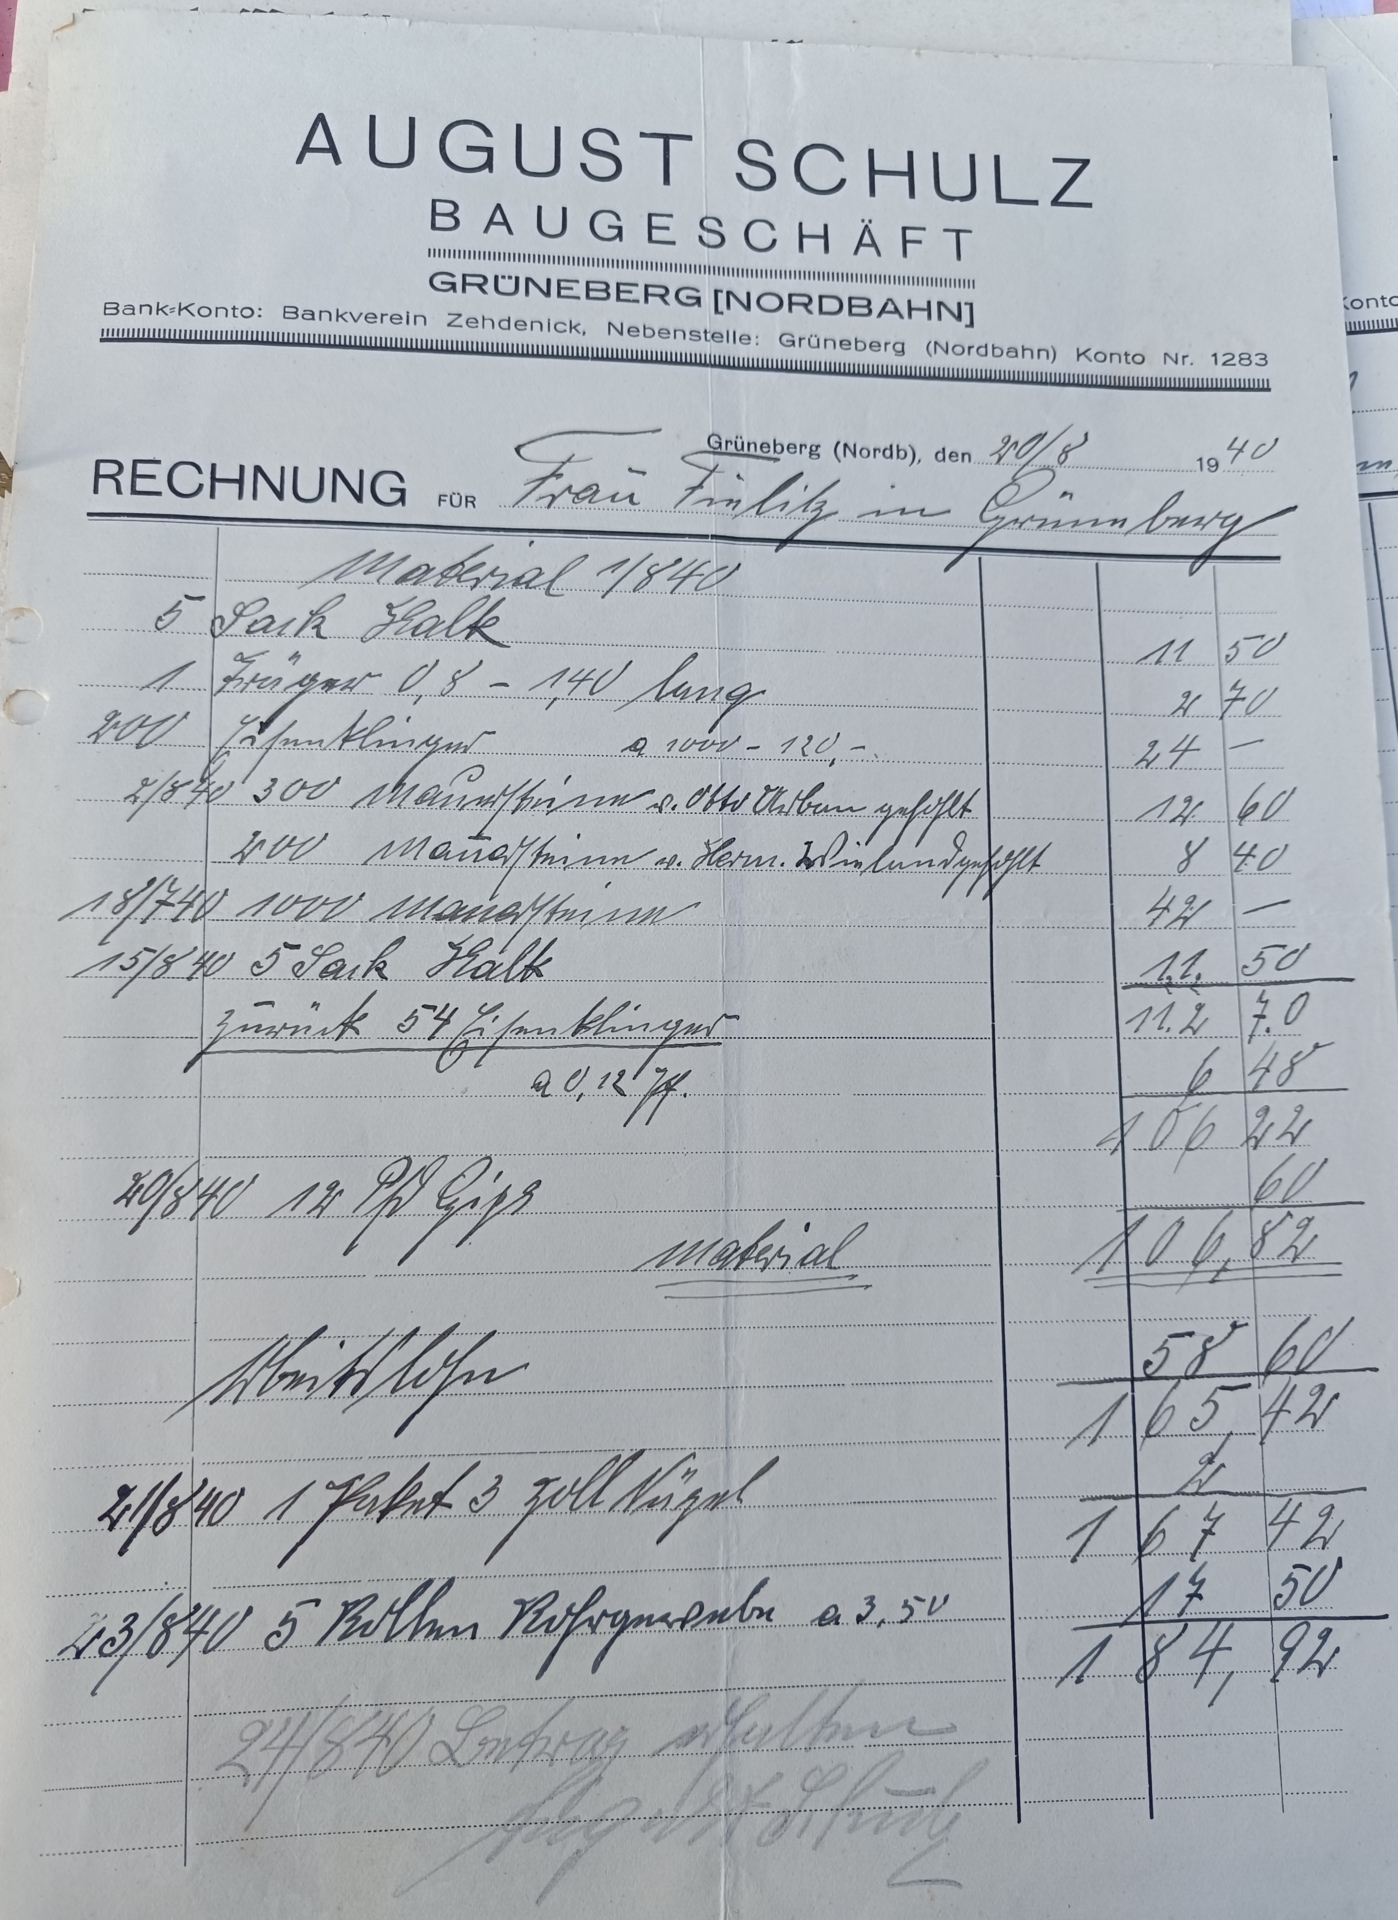 AUGUST SCHULZ
BAUGESCHÄFT
GRÜNEBERG [NORDBAHN]
Bank-Konto: Bankverein Zehdenick, Nebenstelle: Grüneberg (Nordbahn) Konto Nr. 1283
Grüneberg (Nordb), den 20/8 1940
RECHNUNG FÜR Frau in Grüneberg
Material 1/8 40
5 Sack Kalk 11 50
1 Träger 0,8 - 1,40 lang 2 70
200 Eisenklinger a 1000 - 120,- 24 —
2/8 40 300 Mauersteine v. Otto Urban gehohlt 12 60
200 Mauersteine v. Herm. Wieland gehohlt 8 40
18/7 40 1000 Mauersteine 42 —
15/8 40 5 Sack Kalk 11 50
zurück 54 Eisenklinger 112 70
a 0,12 Pf. 6 48
106 22
20/8 40 12 Pfd Gips 60
Material 106,82
Arbeitslohn 58 60
165,42
21/8 40 1 Paket 3 Zoll Nägel 2
167 42
23/8 40 5 Rollen Rohrgewebe a 3,50 17 50
184,92
24/8 40 Betrag erhalten
August Schulz
Konto